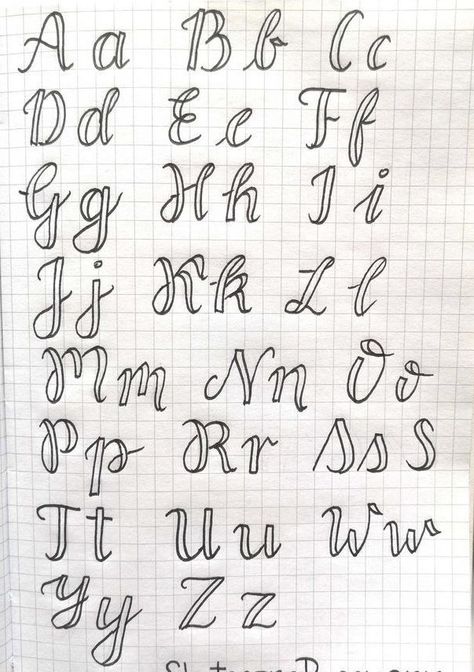 A a B b C c
D d E e F f
G g H h I i
J j K k L l
M m N n O o
P p R r S s S
T t U u W w
Y y Z z